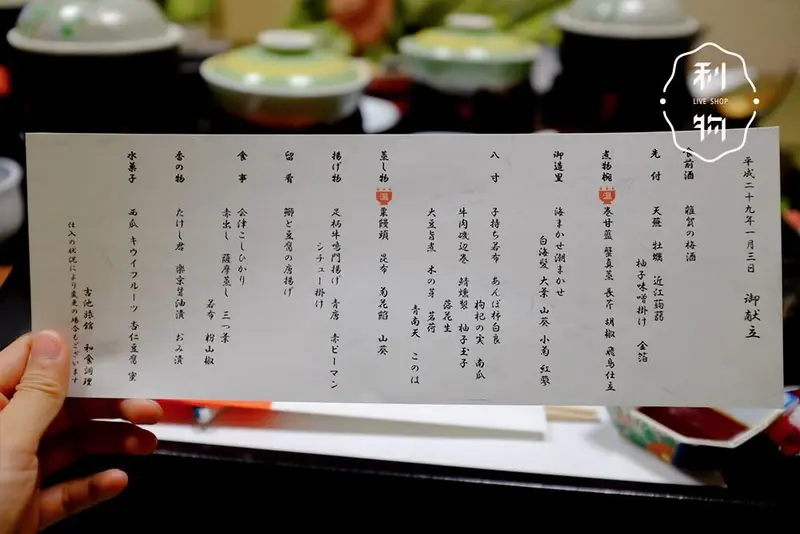 利物
LIVE SHOP
平成二十九年一月三日 御献立
食前酒 雑賀の梅酒
先付 天蕪 牡蠣 近江蒟蒻
柚子味噌掛け 金箔
煮物椀 温 巻甘藍 蟹真茎 長芹 胡椒 飛鳥仕立
御造里 海まかせ潮まかせ
白海髪 大葉 山葵 小菊 紅蓼
八寸 子持ち若布 あんぽ柿白良
枸杞の実 南瓜
牛肉磯辺巻 鯖燻製 柚子玉子
落花生
大豆旨煮 木の芽 茗荷
青南天 このは
蒸し物 温 粟饅頭 昆布 菊花餡 山葵
揚げ物 足柄牛鳴門揚げ 青唐 赤ピーマン
シチュー掛け
留肴 鰤と豆腐の唐揚げ
食事 会津こしひかり
赤出し 薩摩蒸し 三つ葉
若布 粉山椒
香の物 たけし君 楽京醤油漬 おみ漬
水菓子 西瓜 キウイフルーツ 杏仁豆腐 蜜
吉池旅館 和食調理
仕入の状況により変更の場合もございます